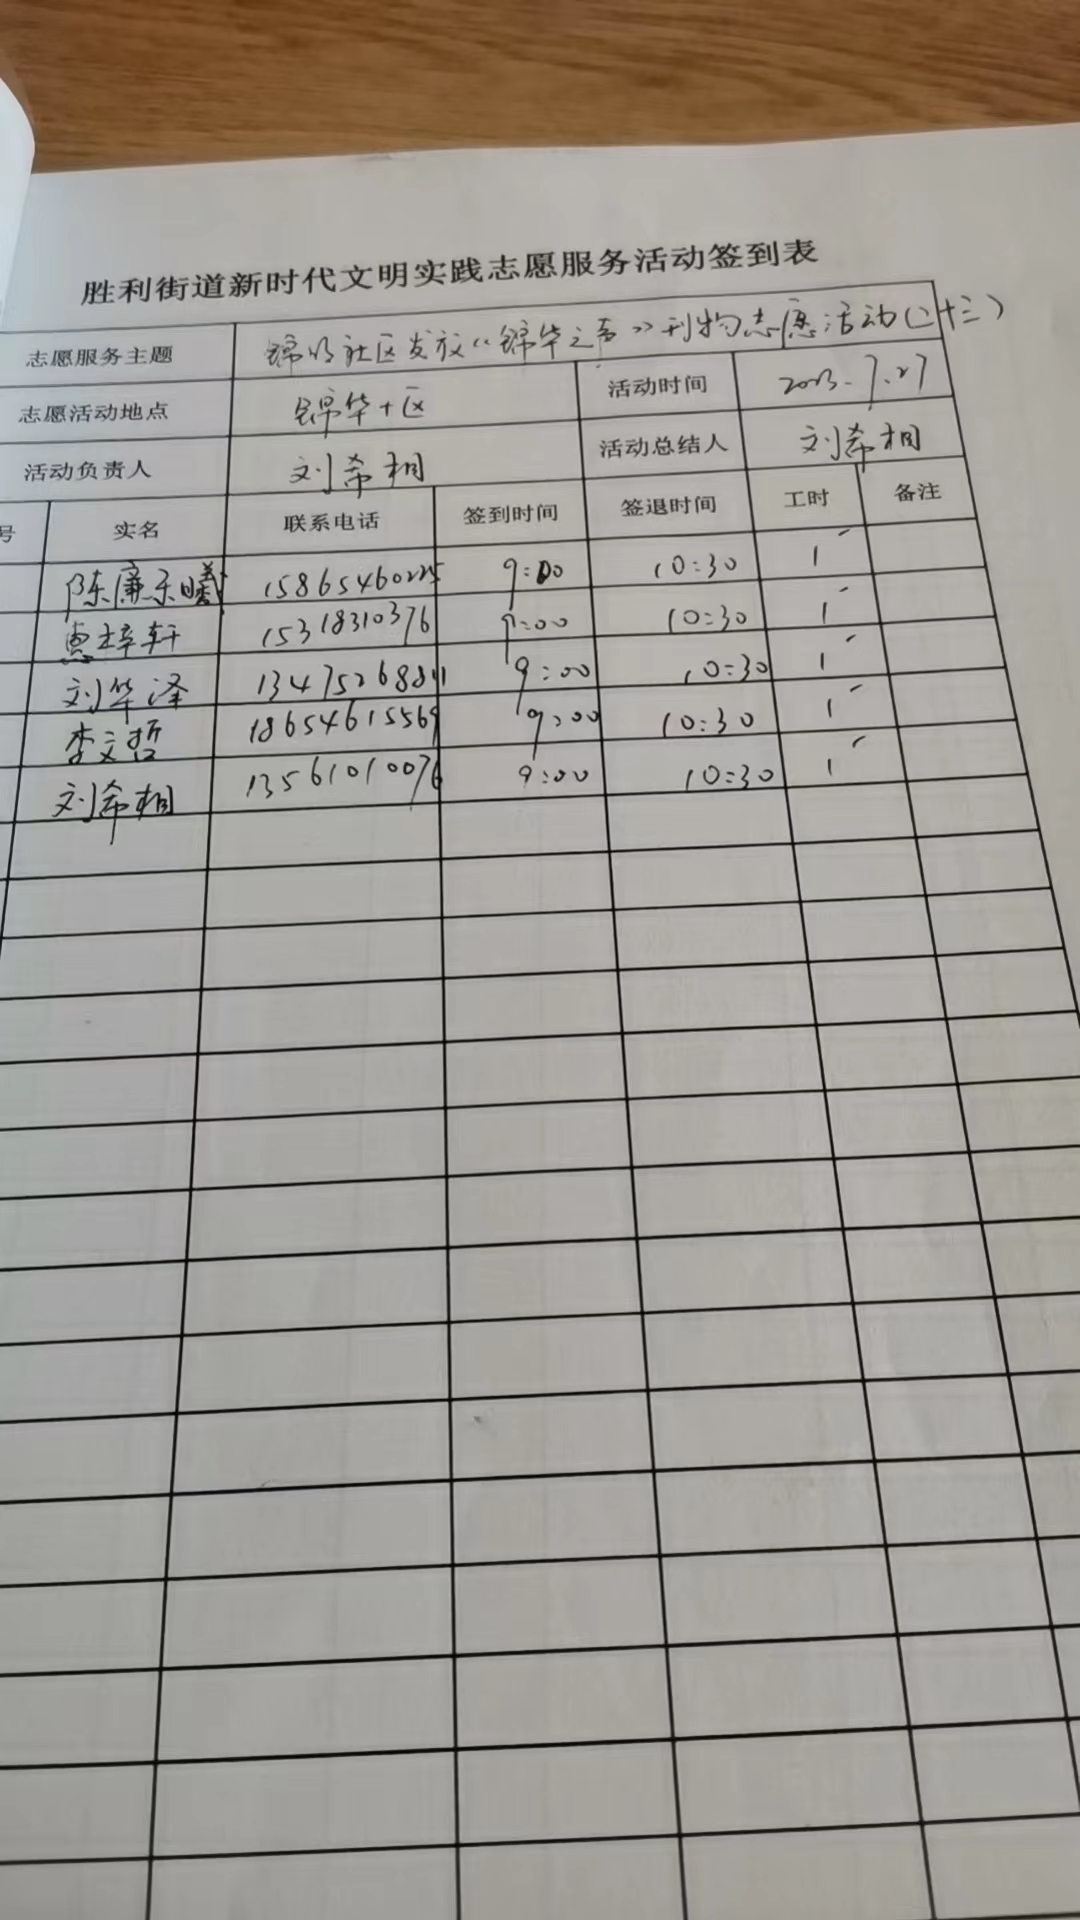 胜利街道新时代文明实践志愿服务活动签到表
志愿服务主题 锦明社区发放《锦华之声》刊物志愿活动(二十三)
志愿活动地点 锦华十区 活动时间 2023.7.27
活动负责人 刘希相 活动总结人 刘希相
号 实名 联系电话 签到时间 签退时间 工时 备注
陈廉禾曦 15865460225 9:00 10:30 1
惠梓轩 15318310376 9:00 10:30 1
刘华泽 13475268841 9:00 10:30 1
李文哲 18654615569 9:00 10:30 1
刘希相 13561010076 9:00 10:30 1